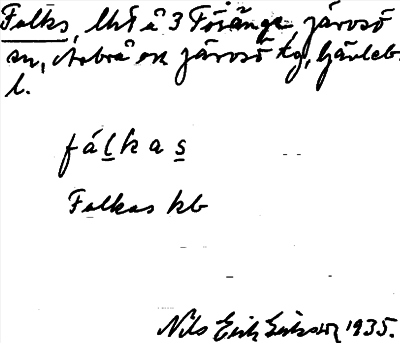 Falks, lht å 3 Föränge, järvsö
sn, Arbrå och järvsö tg, Gävleb.
l.
fálkas
Falkas kb
Nils Erik Eriksson 1935.